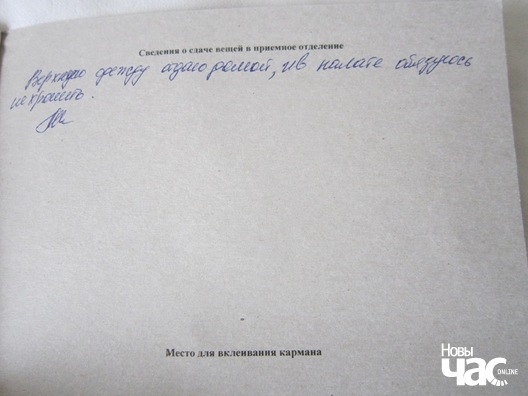 Сведения о сдаче вещей в приемное отделение
Верхнюю одежду отдаю домой, и в палате обязуюсь
не хранить.
Место для вклеивания кармана
Новы
Час
ONLINE